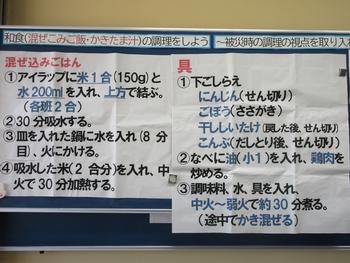 和食(混ぜこみご飯・かきたま汁)の調理をしよう
～被災時の調理の視点を取り入
混ぜ込みごはん
①アイラップに米1合(150g)と
水200mlを入れ、上方で結ぶ。
(各班2合)
②30分吸水する。
③皿を入れた鍋に水を入れ(8分
目)、火にかける。
④吸水した米(2合分)を入れ、中
火で30分加熱する。
具
①下ごしらえ
にんじん(せん切り)
ごぼう(ささがき)
干ししいたけ(戻した後、せん切り)
こんぶ(だしとり後、せん切り)
②なべに油(小1)を入れ、鶏肉を
炒める。
③調味料、水、具を入れ、
中火～弱火で約30分煮る。
(途中でかき混ぜる)